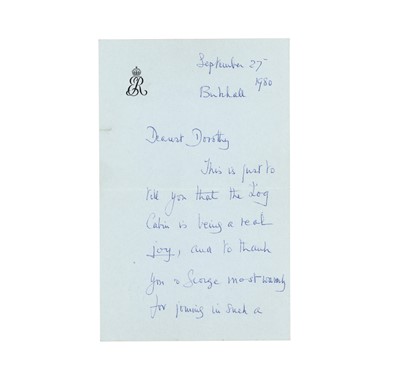 ER
September 27
1980
Birkhall
Dearest Dorothy
This is just to
tell you that the Log
Cabin is being a real
joy, and to thank
you & George most warmly
for joining in such a